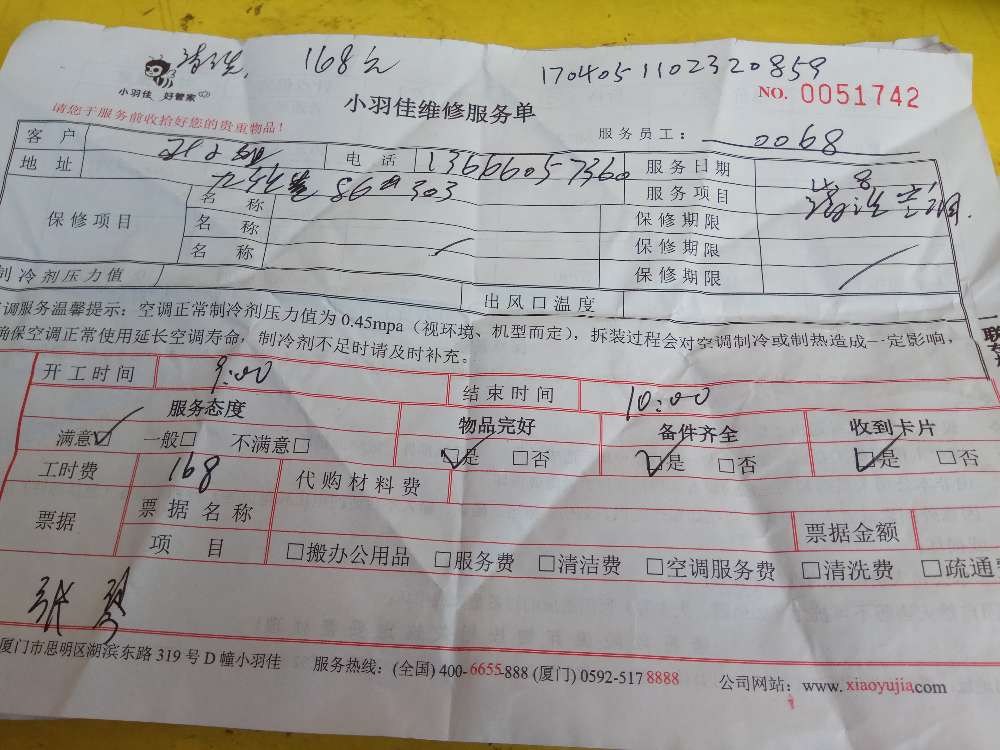 清洗. 168元
1704051102320859
小羽佳 好管家
小羽佳维修服务单
NO. 0051742
请您于服务前收拾好您的贵重物品!
服务员工: 0068
客户 电话 13666057360 服务日期
地址 86 303 服务项目 清洗空调.
保修项目 名称 保修期限
名称 保修期限
名称 保修期限
制冷剂压力值 出风口温度
调服务温馨提示: 空调正常制冷剂压力值为 0.45mpa (视环境、机型而定), 拆装过程会对空调制冷或制热造成一定影响,
确保空调正常使用延长空调寿命, 制冷剂不足时请及时补充。
开工时间 9:00 结束时间 10:00
服务态度 物品完好 备件齐全 收到卡片
满意☑ 一般□ 不满意□ ☑是 □否 ☑是 □否 ☑是 □否
工时费 168 代购材料费
票据 票据名称 票据金额
项目 □搬办公用品 □服务费 □清洁费 □空调服务费 □清洗费 □疏通
张
厦门市思明区湖滨东路 319 号 D 幢小羽佳 服务热线: (全国) 400-6655-888 (厦门) 0592-5178888 公司网站: www.xiaoyujia.com